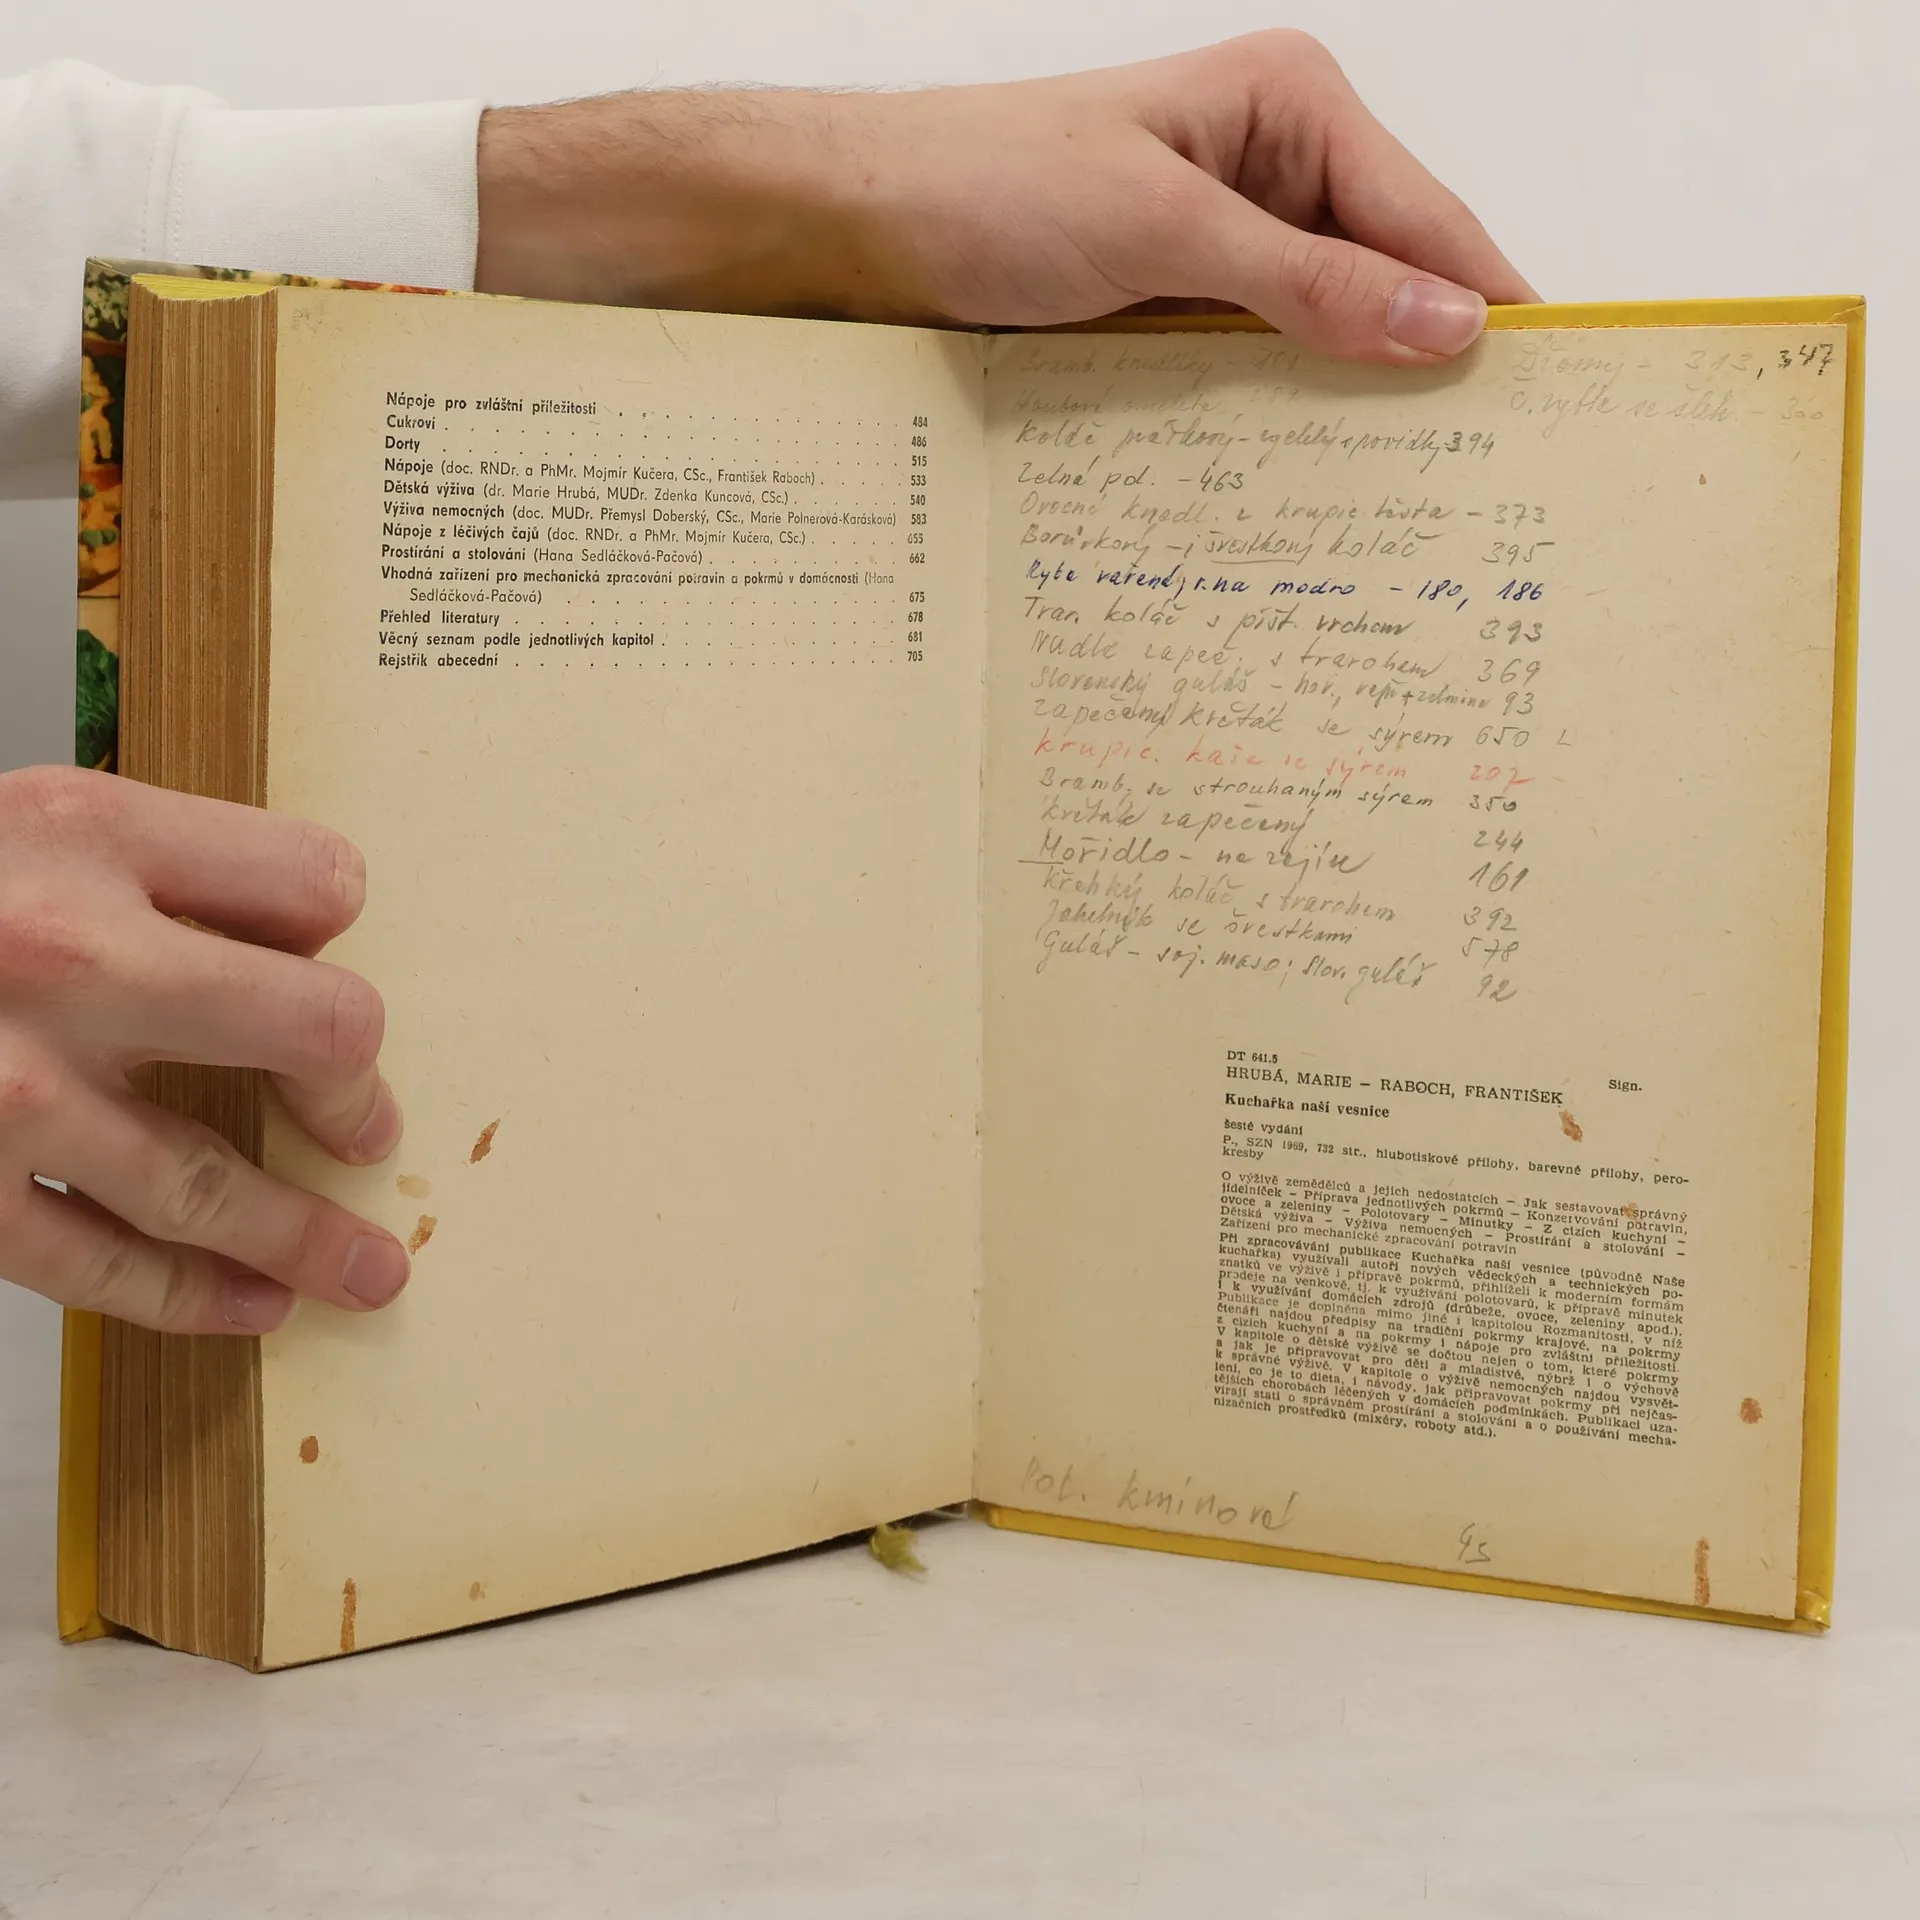 Nápoje pro zvláštní příležitosti . . . . . . . . . . . . . 484
Cukroví . . . . . . . . . . . . . . . . . . . 486
Dorty . . . . . . . . . . . . . . . . . . . 515
Nápoje (doc. RNDr. a PhMr. Mojmír Kučera, CSc., František Raboch) . . . . 533
Dětská výživa (dr. Marie Hrubá, MUDr. Zdenka Kuncová, CSc.) . . . . . 540
Výživa nemocných (doc. MUDr. Přemysl Doberský, CSc., Marie Polnerová-Karásková) 583
Nápoje z léčivých čajů (doc. RNDr. a PhMr. Mojmír Kučera, CSc.) . . . . . 655
Prostírání a stolování (Hana Sedláčková-Pačová) . . . . . . . . . 662
Vhodná zařízení pro mechanická zpracování potravin a pokrmů v domácnosti (Hana
Sedláčková-Pačová) . . . . . . . . . . . . . . 675
Přehled literatury . . . . . . . . . . . . . . . . 678
Věcný seznam podle jednotlivých kapitol . . . . . . . . . . . 681
Rejstřík abecední . . . . . . . . . . . . . . . . 705
Bramb. knedlíky -
Houbová omeleta
- 313, 347
Č. rybíz se šleh. - 300
Koláč - rychlý s povidly 394
Zelná pol. - 463
Ovocné knedl. z krupic. těsta - 373
Borůvkový - i švestkový koláč 395
Ryba vařená, r. na modro - 180, 186
Tvar. koláč s píšt. vrchem 393
Nudle zapeč. s tvarohem 369
Slovenský guláš - hov., vepř. + zelenina 93
Zapečený květák se sýrem 650
Krupic. kaše se sýrem 207
Bramb. se strouhaným sýrem 350
Květák zapečený 244
Mořidlo - na 161
Křehký koláč s tvarohem 392
Jahelník se švestkami 578
Guláš - soj. maso; slov. guláš 92
DT 641.5
Sign.
HRUBÁ, MARIE – RABOCH, FRANTIŠEK
Kuchařka naší vesnice
šesté vydání
P., SZN 1969, 732 str., hlubotiskové přílohy, barevné přílohy, pero-
kresby
O výživě zemědělců a jejich nedostatcích – Jak sestavovat správný
jídelníček – Příprava jednotlivých pokrmů – Konzervování potravin,
ovoce a zeleniny – Polotovary – Minutky – Z cizích kuchyní –
Dětská výživa – Výživa nemocných – Prostírání a stolování –
Zařízení pro mechanické zpracování potravin
Při zpracovávání publikace Kuchařka naší vesnice (původně Naše
kuchařka) využívali autoři nových vědeckých a technických po-
znatků ve výživě i přípravě pokrmů, přihlíželi k moderním formám
prodeje na venkově, tj. k využívání polotovarů, k přípravě minutek
i k využívání domácích zdrojů (drůbeže, ovoce, zeleniny apod.).
Publikace je doplněna mimo jiné i kapitolou Rozmanitosti, v níž
čtenáři najdou předpisy na tradiční pokrmy krajové, na pokrmy
z cizích kuchyní a na pokrmy i nápoje pro zvláštní příležitosti.
V kapitole o dětské výživě se dočtou nejen o tom, které pokrmy
a jak je připravovat pro děti a mladistvé, nýbrž i o výchově
k správné výživě. V kapitole o výživě nemocných najdou vysvět-
lení, co je to dieta, i návody, jak připravovat pokrmy při nejčas-
tějších chorobách léčených v domácích podmínkách. Publikaci uza-
vírají stati o správném prostírání a stolování a o používání mecha-
nizačních prostředků (mixéry, roboty atd.).
Pol. kmínová